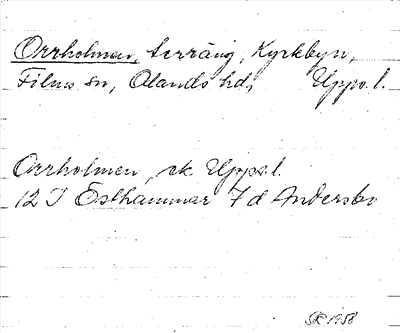 Orrholmen, terräng, Kyrkbyn,
Films sn, Olands hd, Upps. l.
Orrholmen, ek. Upps. l.
12 I Östhammar 7 d Andersbo
1958